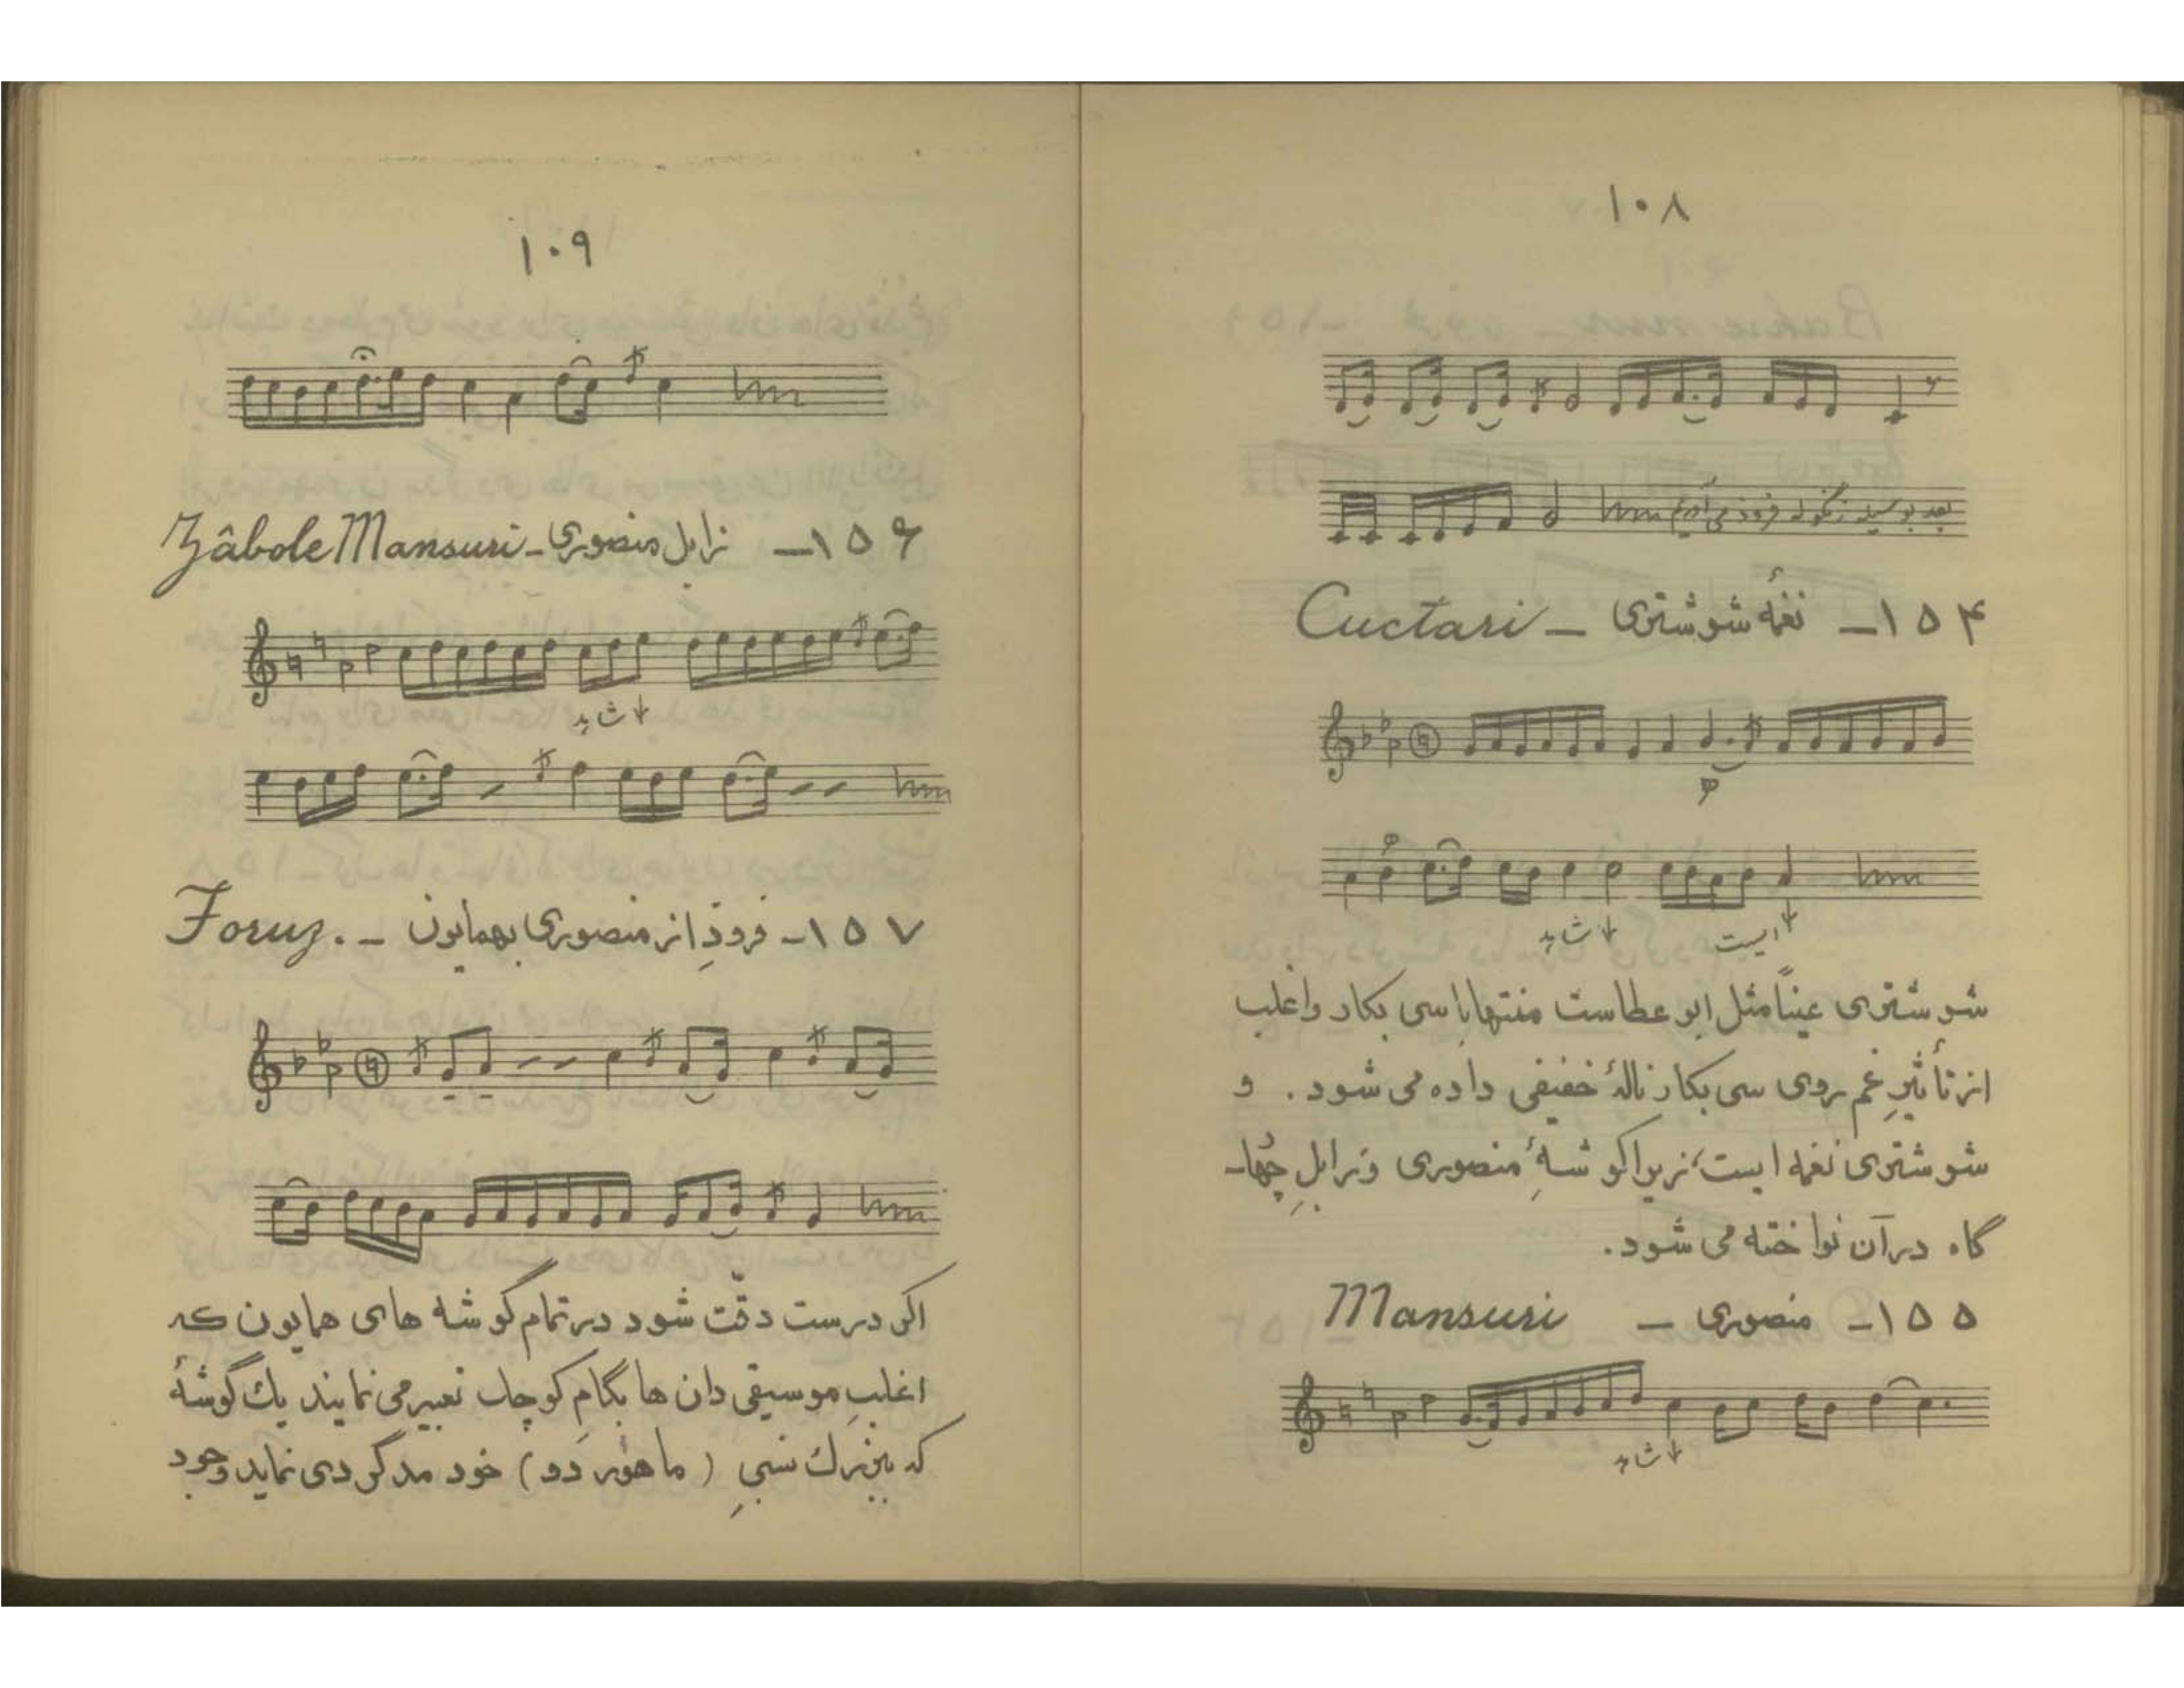 ۱۰۸
بعد بوسیله زنگوله فرود می آییم
۱۵۴ـ نغمهٔ شوشتری ـ Cuctari
شاهد ایست
شوشتری عیناً مثل ابوعطاست منتها با سی بکار و اغلب
از تأثیرِ غم روی سی بکار نالهٔ خفیفی داده می شود. و
شوشتری نغمه ایست، زیرا گوشهٔ منصوری و زابلِ چهار
گاه در آن نواخته می شود.
۱۵۵ـ منصوری ـ Mansuri
شاهد
۱۰۹
۱۵۶ـ زابل منصوری ـ Zâbole Mansuri
شاهد
۱۵۷ـ فرودِ از منصوری بهمایون ـ Foruz.
اگر درست دقّت شود در تمام گوشه های همایون که
اغلبِ موسیقی دان ها بگامِ کوچک تعبیر می نمایند یک گوشهٔ
که بزرگ نسبیِ (ماهور دو) خود مدگردی نماید وجود